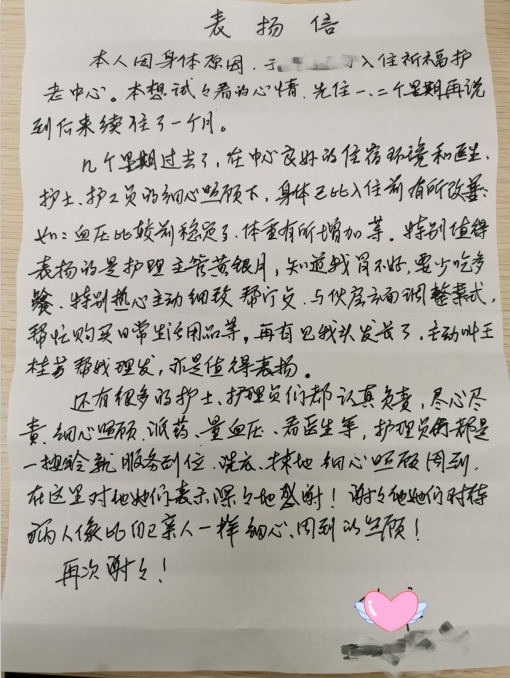 表扬信
本人因身体原因，于 入住祈福护
老中心。本想试々看的心情，先住一、二个星期再说
到后来续住了一个月。
几个星期过去了，在中心良好的住宿环境和医生、
护士、护工员的细心照顾下，身体已比入住前有所改善：
如：血压比较前稳定了、体重有所增加等。特别值得
表扬的是护理主管黄银月，知道我胃不好，要少吃多
餐，特别热心主动细致帮 与伙房方面调整菜式，
帮忙购买日常生活用品等。再有见我头发长了，主动叫王
桂芳帮我理发，亦是值得表扬。
还有很多的护士、护理员们都认真负责，尽心尽
责，细心照顾、派药、量血压、看医生等，护理员 都是
一 就服务到位、洗衣、抹地细心照顾周到，
在这里对他她们表示深々地感谢！谢々他她们对待
病人像比自己亲人一样细心、周到的照顾！
再次谢々！